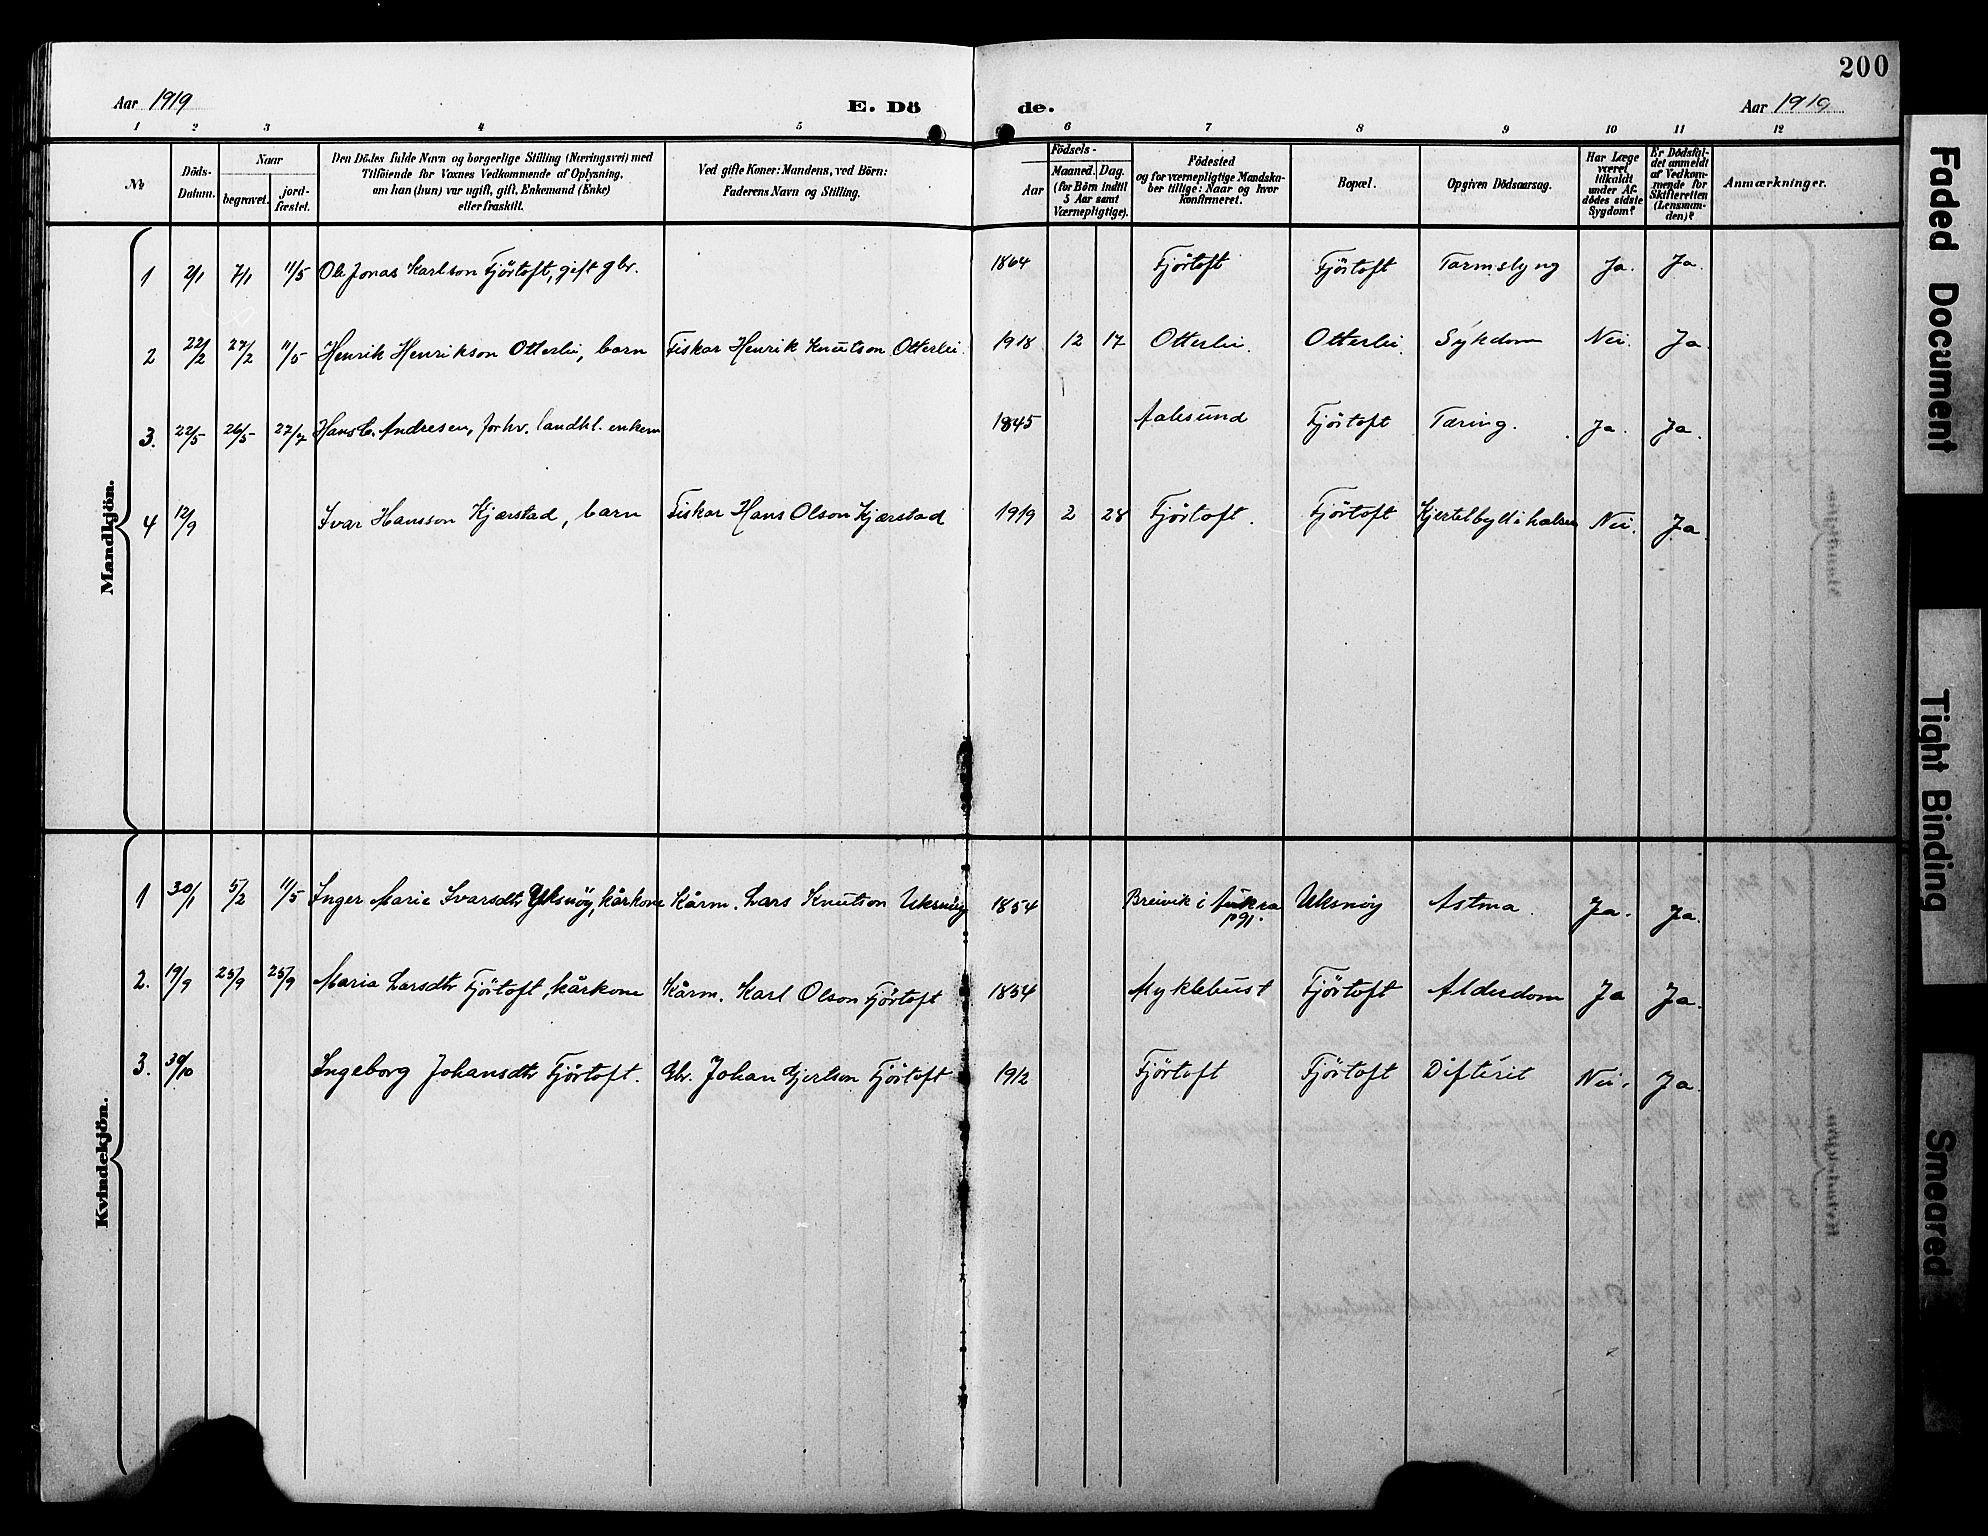 200
Aar 1919
E. Dö de.
Aar 1919
1 2 3 4 5 6 7 8 9 10 11 12
No
Döds-Datum.
Naar
begravet.
jord-fæstet.
Den Dödes fulde Navn og borgerlige Stilling (Næringsvei) med
Tilföiende for Voxnes Vedkommende af Oplysning,
om han (hun) var ugift, gift, Enkemand (Enke)
eller fraskilt.
Ved gifte Koner: Mandens, ved Börn:
Faderens Navn og Stilling.
Födsels-
Aar
Maaned. Dag.
(for Börn indtil
5 Aar samt
Værnepligtige).
Födested
og for værnepligtige Mandska-
ber tillige: Naar og hvor
konfirmeret.
Bopæl.
Opgiven Dödsaarsag.
Har Læge
været
tilkaldt
under Af-
dödes sidste
Sygdom?
Er Dödsfal-
det anmeldt
af Vedkom-
mende for
Skifteretten
(Lensman-
den)?
Anmærkninger.
Mandkjön.
1 2/1 7/1 11/5 Ole Jonas Karlson Fjörtoft, gift gbr. 1864 Fjörtoft Fjörtoft Tarmslyng Ja. Ja.
2 22/2 27/2 11/5 Henrik Henrikson Otterlei, barn Fiskar Henrik Knutson Otterlei. 1918 12 17 Otterlei. Otterlei. Sykdom Nei. Ja.
3. 22/5 26/5 27/7 Hans C. Andresen, forhv. landhl. enkem 1845 Aalesund Fjörtoft Tæring. Ja. Ja.
4 12/9 Ivar Hansson Kjærstad, barn Fiskar Hans Olson Kjærstad 1919 2 28 Fjörtoft. Fjörtoft Kjertelbyll i halsen Nei. Ja.
Kvindekjön.
1 30/1 5/2 11/5 Inger Marie Ivarsdtr Uksnöy, kårkone Kårm. Lars Knutson Uksnöy 1854 Breivik i Aukra pgj. Uksnöy Astma. Ja. Ja.
2. 19/9 25/9 25/9 Maria Larsdtr Fjörtoft, kårkone Kårm. Karl Olson Fjörtoft 1834 Myklebust Fjörtoft Alderdom Ja Ja.
3. 30/10 Ingeborg Johansdtr Fjörtoft. Gbr. Johan Gjertson Fjörtoft 1912 Fjörtoft Fjörtoft Difterit Nei. Ja.
Faded Document
Tight Binding
Smeared